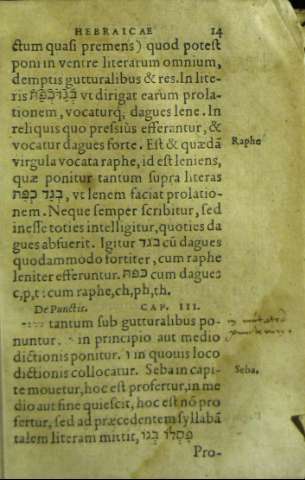 HEBRAICAE 14
ctum quasi premens) quod potest
poni in ventre literarum omnium,
demptis gutturalibus & res. In lite-
ris בגדכפת vt dirigat earum prola-
tionem, vocaturq́; dagues lene. In
reliquis quo pressius efferantur, &
vocatur dagues forte. Est & quædā
virgula vocata raphe, id est leniens,
Raphe
quæ ponitur tantum supra literas
בגד כפת, vt lenem faciat prolatio-
nem. Neque semper scribitur, sed
inesse toties intelligitur, quoties da
gues absuerit. Igitur בגד cū dagues
quodammodo fortiter, cum raphe
leniter efferuntur. כפת cum dagues
c, p, t: cum raphe, ch, ph, th.
De Punctis. CAP. III.
tantum sub gutturalibus po-
nuntur. in principio aut medio
dictionis ponitur. ו in quouis loco
dictionis collocatur. Seba in capi-
Seba.
te mouetur, hoc est profertur, in me
dio aut fine quiescit, hoc est nō pro
fertur, sed ad præcedentem syllabā
talem literam mittit,
Pro-